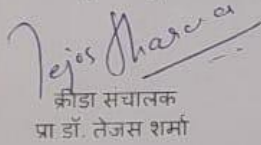 Tejas Sharma
क्रीडा संचालक
प्रा डॉ. तेजस शर्मा